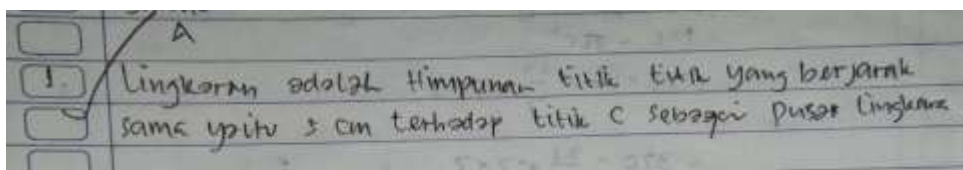 A
1. Lingkaran adalah Himpunan titik titik yang berjarak
sama yaitu 5 cm terhadap titik C sebagai pusat lingkaran